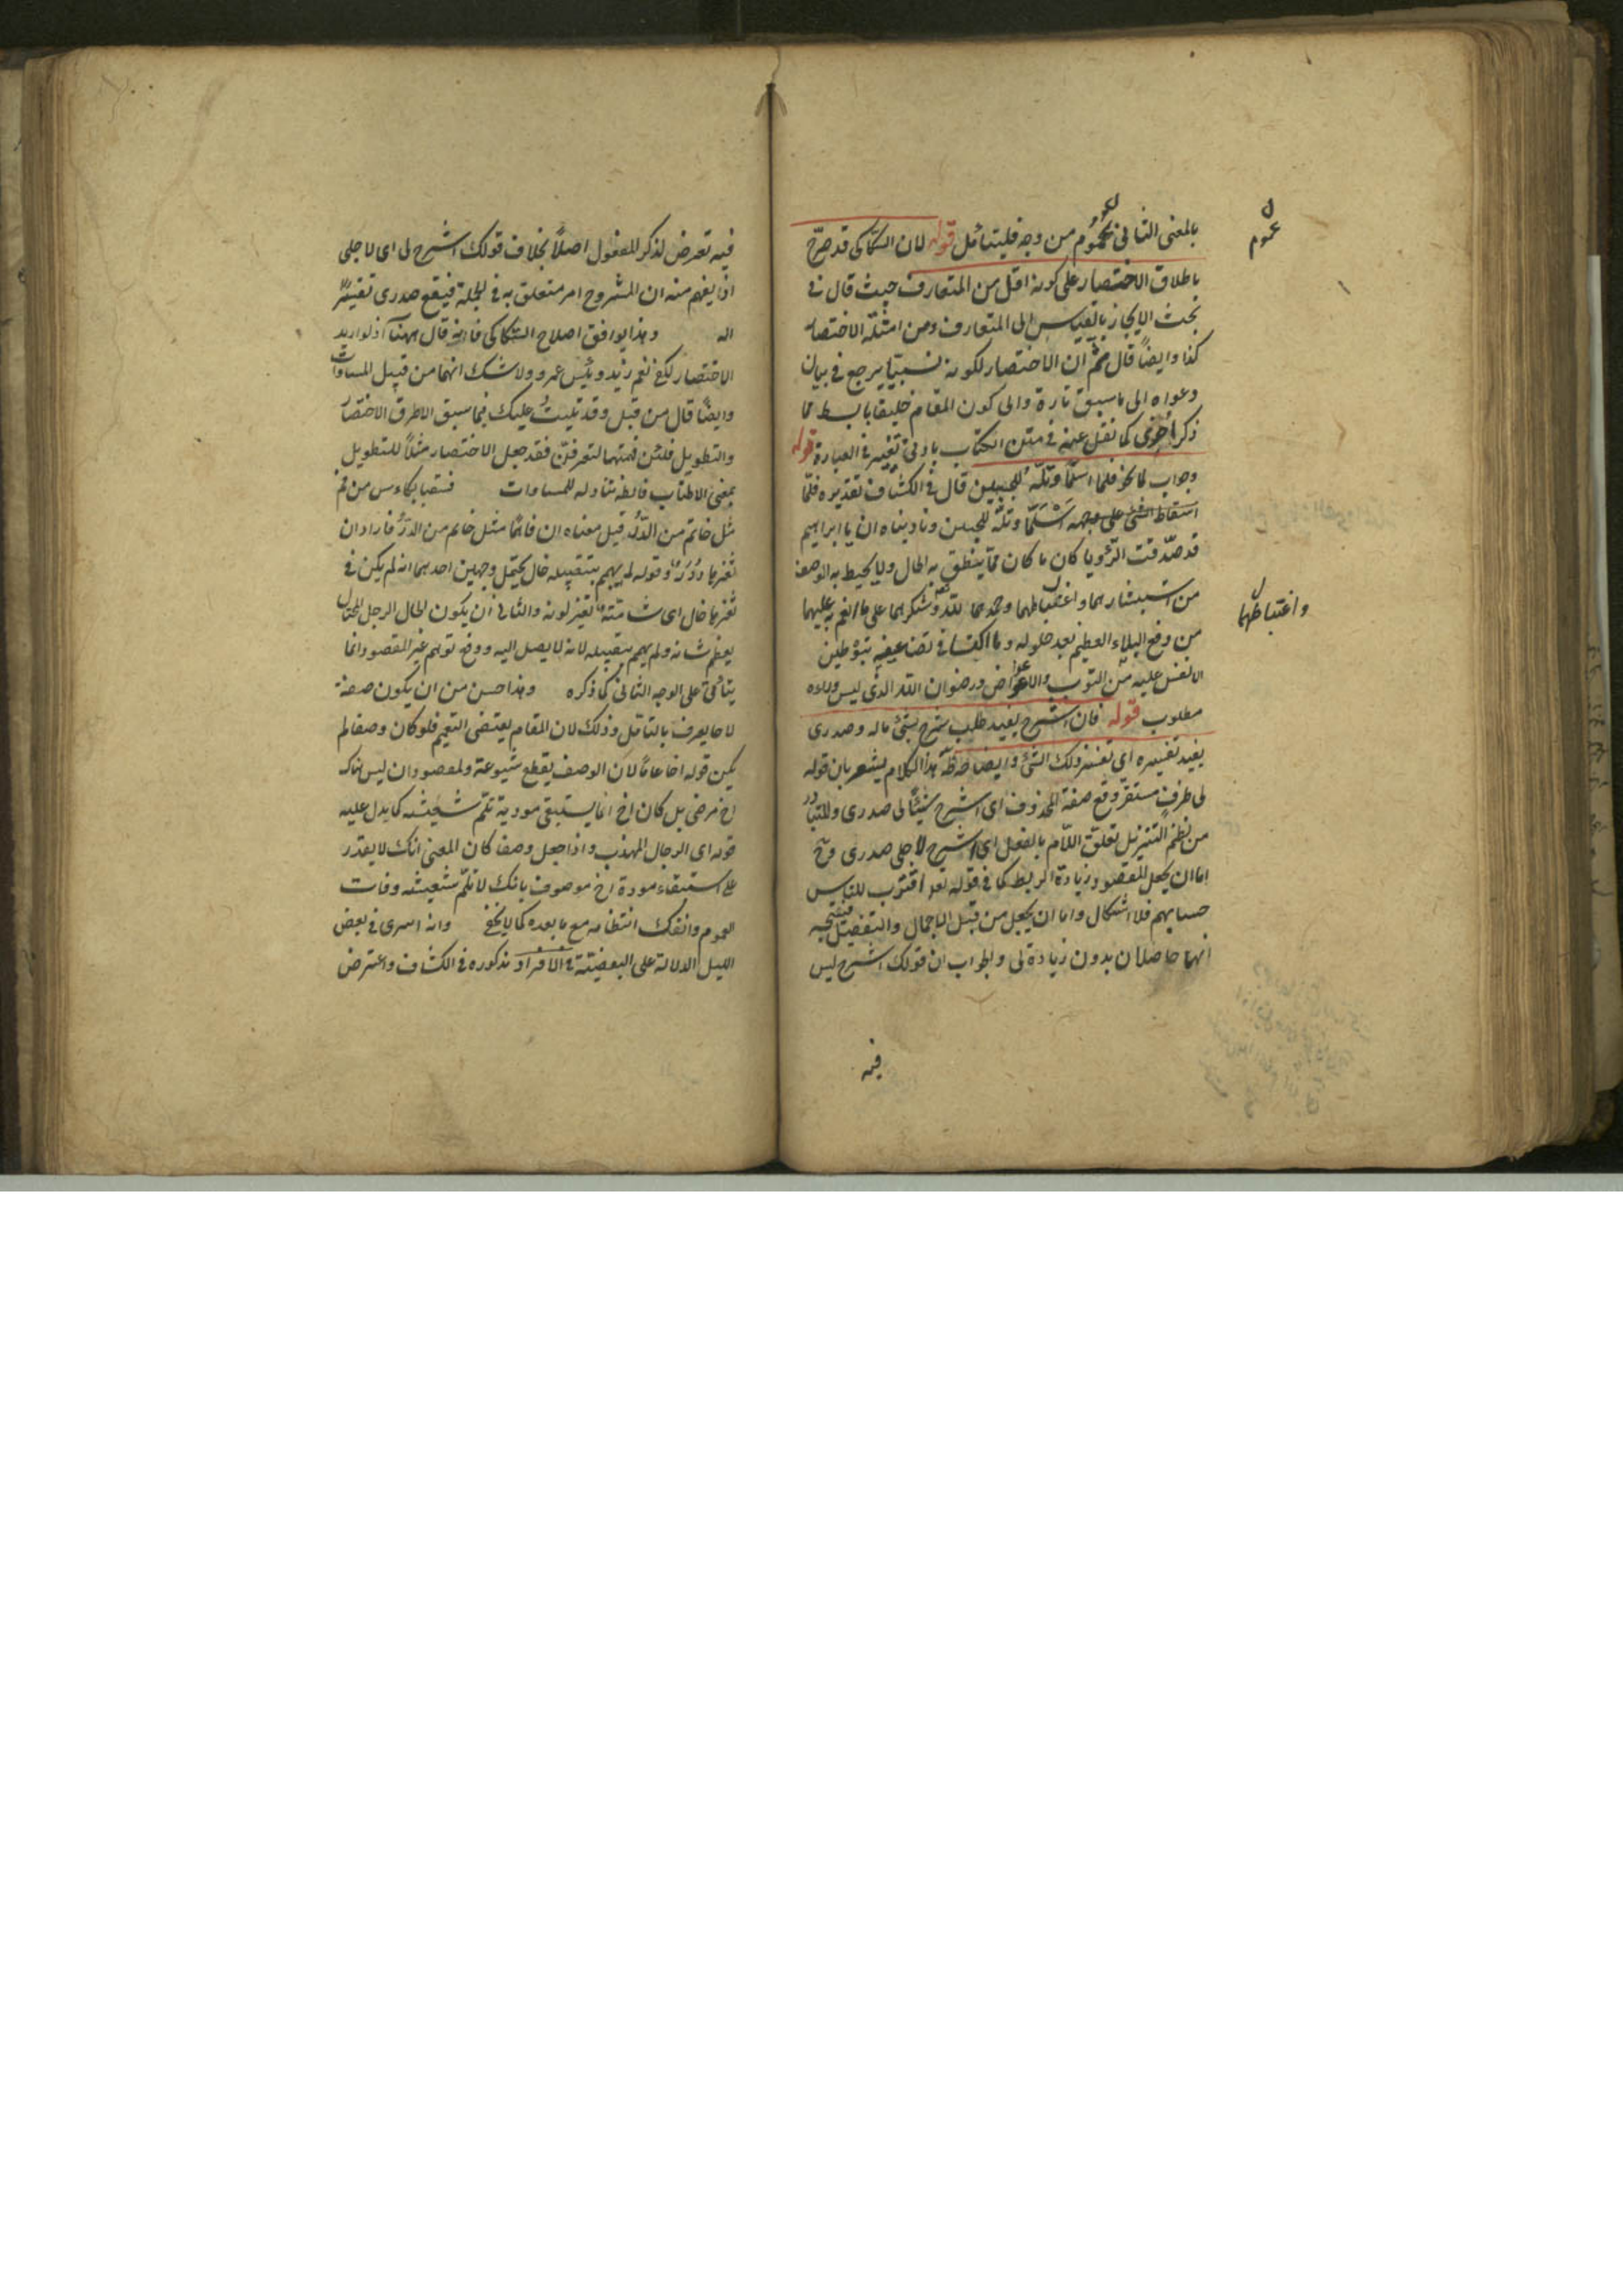 بالمعنى الثانى عموم من وجه فليتأمل قوله لان السكاكى قد صرّح
عموم
باطلاق الاختصار على كونه اقل من المتعارف حيث قال فى
بحث الايجاز بالقياس الى المتعارف ومن امثلة الاختصار
كذا وايضاً قال ثم ان الاختصار لكونه نسبيّا يرجع فى بيان
دعواه الى ما سبق تارة والى كون المقام خليقا بابسط مما
ذكر اخرى كما نقل عنه فى متن الكتاب بادنى تغيير فى العبارة قوله
وجواب لما نحو فلما اسلما وتلّه للجبين قال فى الكشاف تقديره فلمّا
اسلما وتلّه للجبين وناديناه ان يا ابراهيم
قد صدّقت الرؤيا كان ما كان ممّا ينطق به الحال ولا يحيط به الوصف
من استبشارهما واغتباطهما وحمدهما لله وشكرهما على ما انعم به عليهما
واغتباطهما
من دفع البلاء العظيم بعد حلوله وما اكتسبا فى تضاعيفه بتوطين
الانفس عليه من الثواب والاعواض ورضوان الله الذى ليس وراءه
مطلوب قوله فان اشرح يفيد طلب شرح بشئ ما له وصدرى
يفيد تفسيره اى تفسير ذلك الشئ وايضاحه هذا الكلام يشعر بان قوله
لى ظرف مستقر وقع صفة المحذوف اى اشرح شيئاً لى صدرى والمتبادر
من نظم التنزيل تعلق اللام بالفعل اى اشرح لاجلى صدرى وح
اما ان يجعل للمقصود زيادة الربط كما فى قوله تعا اقترب للناس
حسابهم فلا اشكال واما ان يجعل من قبيل الاجمال والتفصيل فيتجه
انهما حاصلان بدون زيادة لى والجواب ان قولك اشرح ليس
فيه
فيه تعرض لذكر المفعول اصلاً بخلاف قولك اشرح لى اى لاجلى
اذ يفهم منه ان المشروح امر متعلق به فى الجملة فيقع صدرى تفسيراً
اله وهذا يوافق اصلاح السكاكى فانه قال ههنا اذ لو اريد
الاختصار لكفى نعم زيد وبئس عمرو ولا شك انهما من قبيل المساوات
وايضاً قال من قبل وقد تليت عليك فيما سبق الاطرق الاختصار
والتطويل فلئن فهمتها لتعرفنّ فقد جعل الاختصار مثلاً للتطويل
بمعنى الاطناب فانظه تناوله للمساوات فسقيا بكاءس من فم
مثل خاتم من الدر قيل معناه ان فاهما مثل خاتم من الدر فاراد ان
ثغرها درر وقوله لم يهم بتقبيله خال يحتمل وجهين احدهما انه لم يكن فى
ثغرها خال اى شامة تغير لونه والثانى ان يكون الخال الرجل المختال
يعظم شانه ولم يهم بتقبيله لانه لا يصل اليه ودفع توهم غير المقصود انما
يتأتى على الوجه الثانى كما ذكره وهذا حسن من ان يكون صفة
لاخا يعرف بالتامل وذلك لان المقام يقتضى التعميم فلو كان وصفا لم
يكن قوله اخا عاماً لان الوصف يقطع شيوعته والمقصود ان ليس هناك
اخ مرضى بل كان اخ انما يستبقى مودته تلم شعثه كما يدل عليه
قوله اى الرجال المهذب واذا جعل وصفا كان المعنى انك لا تقدر
على استبقاء مودة اخ موصوف بانك لا تلم شعثه وفات
العموم وانفك انتظامه مع ما بعده كما لا يخفى وانه اسرى فى بعض
الليل الدلالة على البعضية فى الافراد مذكوره فى الكشاف واعترض